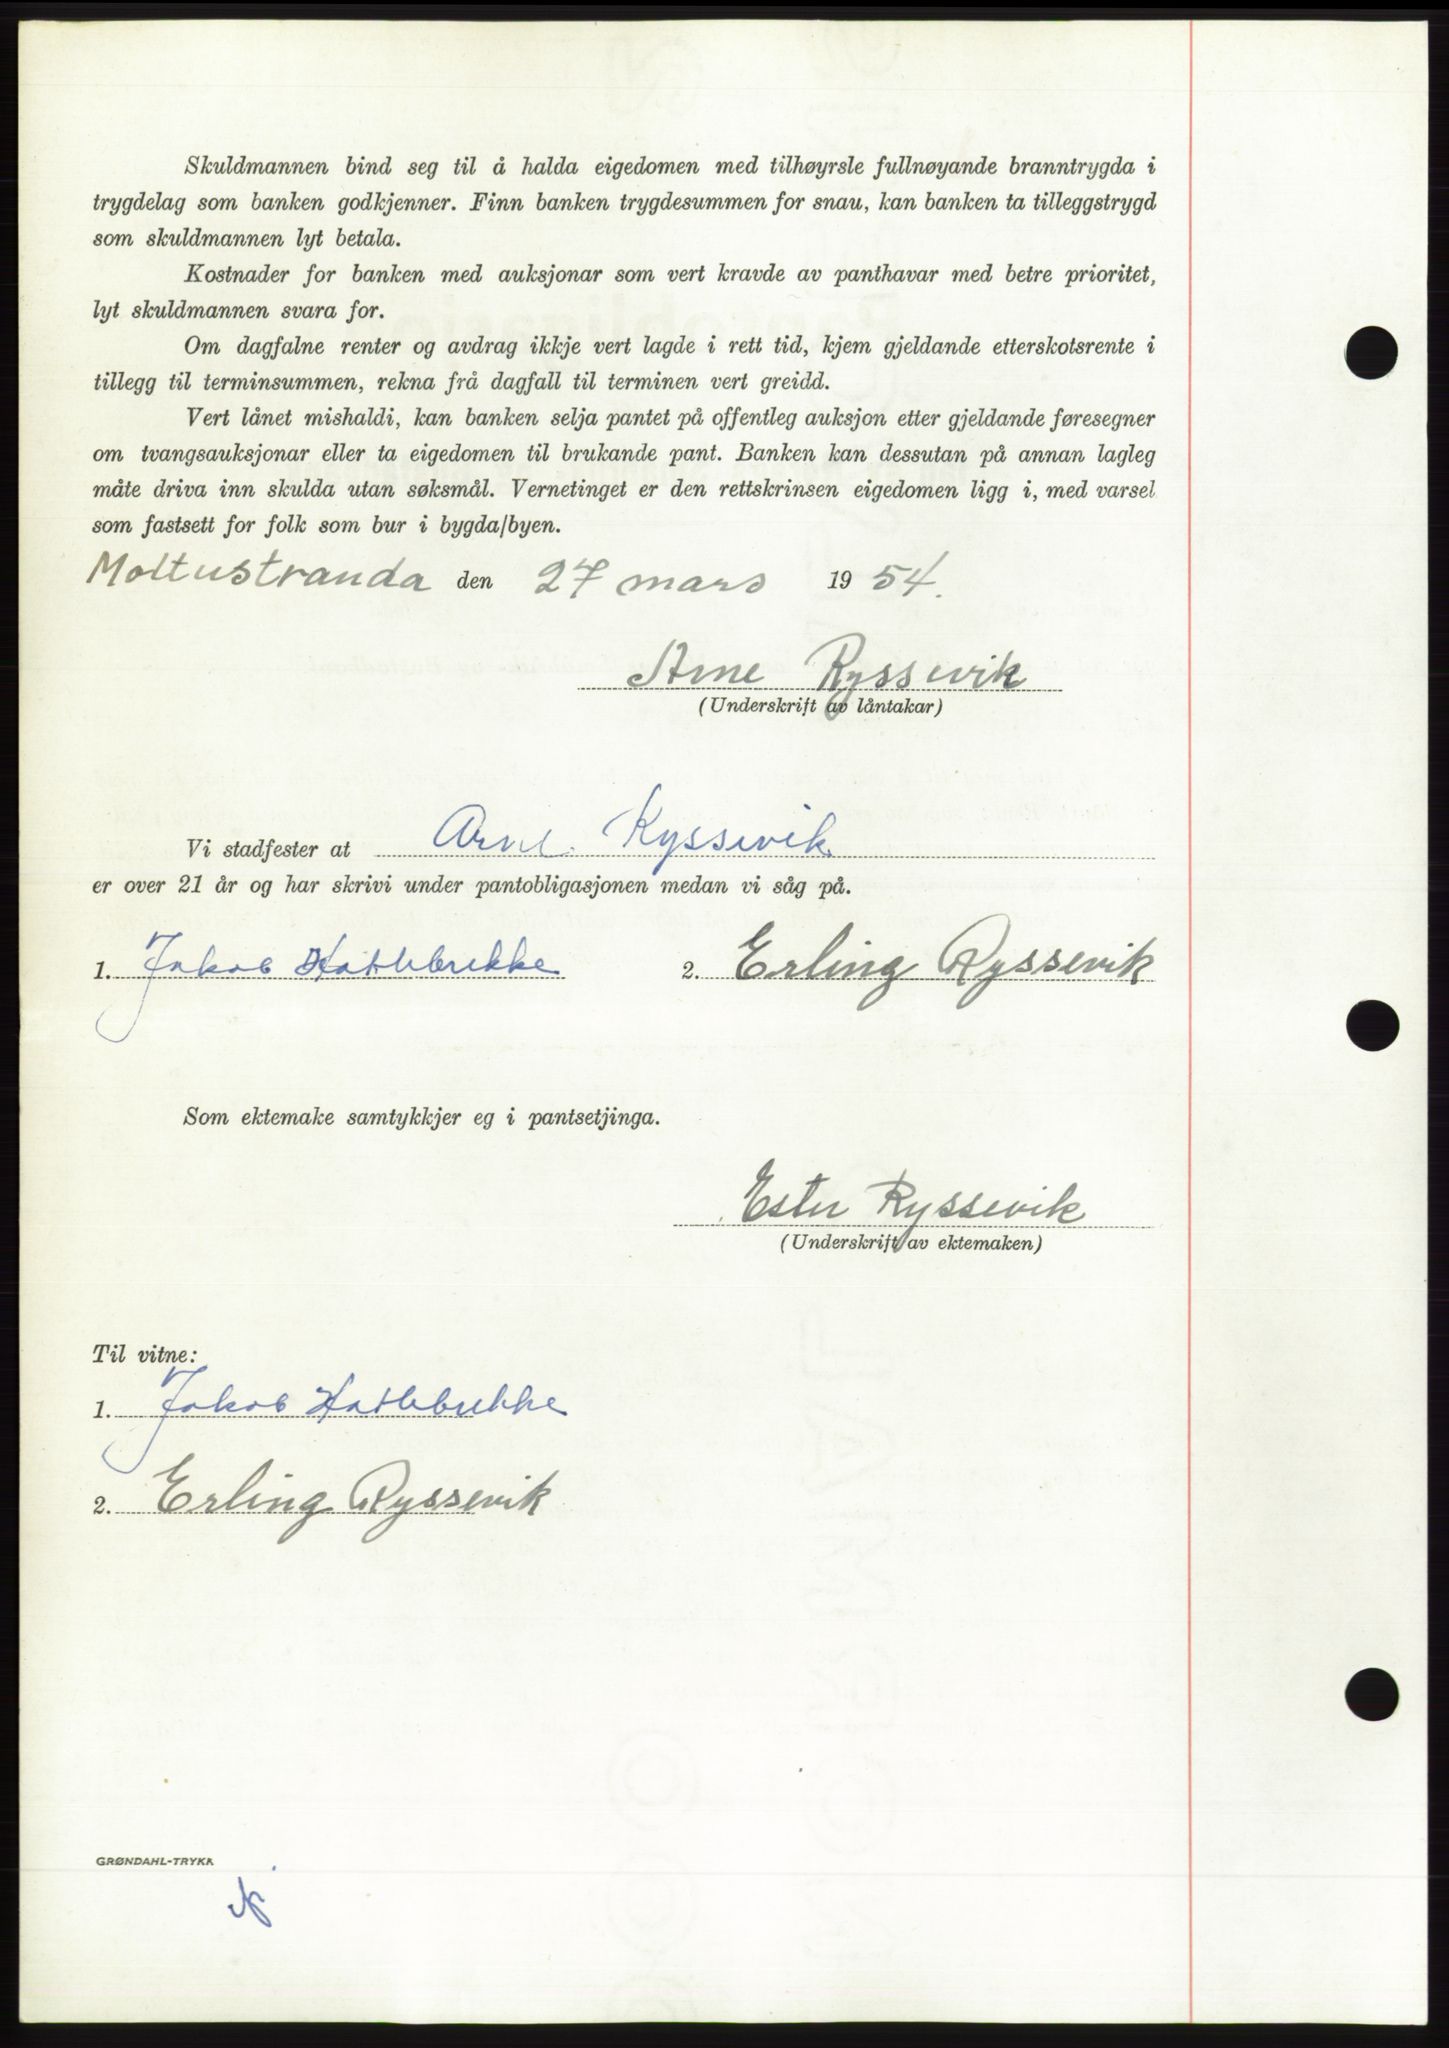 Skuldmannen bind seg til å halda eigedomen med tilhøyrsle fullnøyande branntrygda i
trygdelag som banken godkjenner. Finn banken trygdesummen for snau, kan banken ta tilleggstrygd
som skuldmannen lyt betala.
Kostnader for banken med auksjonar som vert kravde av panthavar med betre prioritet,
lyt skuldmannen svara for.
Om dagfalne renter og avdrag ikkje vert lagde i rett tid, kjem gjeldande etterskotsrente i
tillegg til terminsummen, rekna frå dagfall til terminen vert greidd.
Vert lånet mishaldi, kan banken selja pantet på offentleg auksjon etter gjeldande føresegner
om tvangsauksjonar eller ta eigedomen til brukande pant. Banken kan dessutan på annan lagleg
måte driva inn skulda utan søksmål. Vernetinget er den rettskrinsen eigedomen ligg i, med varsel
som fastsett for folk som bur i bygda/byen.
Moltustranda den 27 mars 1954.
Arne Ryssevik
(Underskrift av låntakar)
Vi stadfester at Arne Ryssevik
er over 21 år og har skrivi under pantobligasjonen medan vi såg på.
1. Jakob Hatlebrekke 2. Erling Ryssevik
Som ektemake samtykkjer eg i pantsetjinga.
Ester Ryssevik
(Underskrift av ektemaken)
Til vitne:
1. Jakob Hatlebrekke
2. Erling Ryssevik
GRØNDAHL-TRYKK